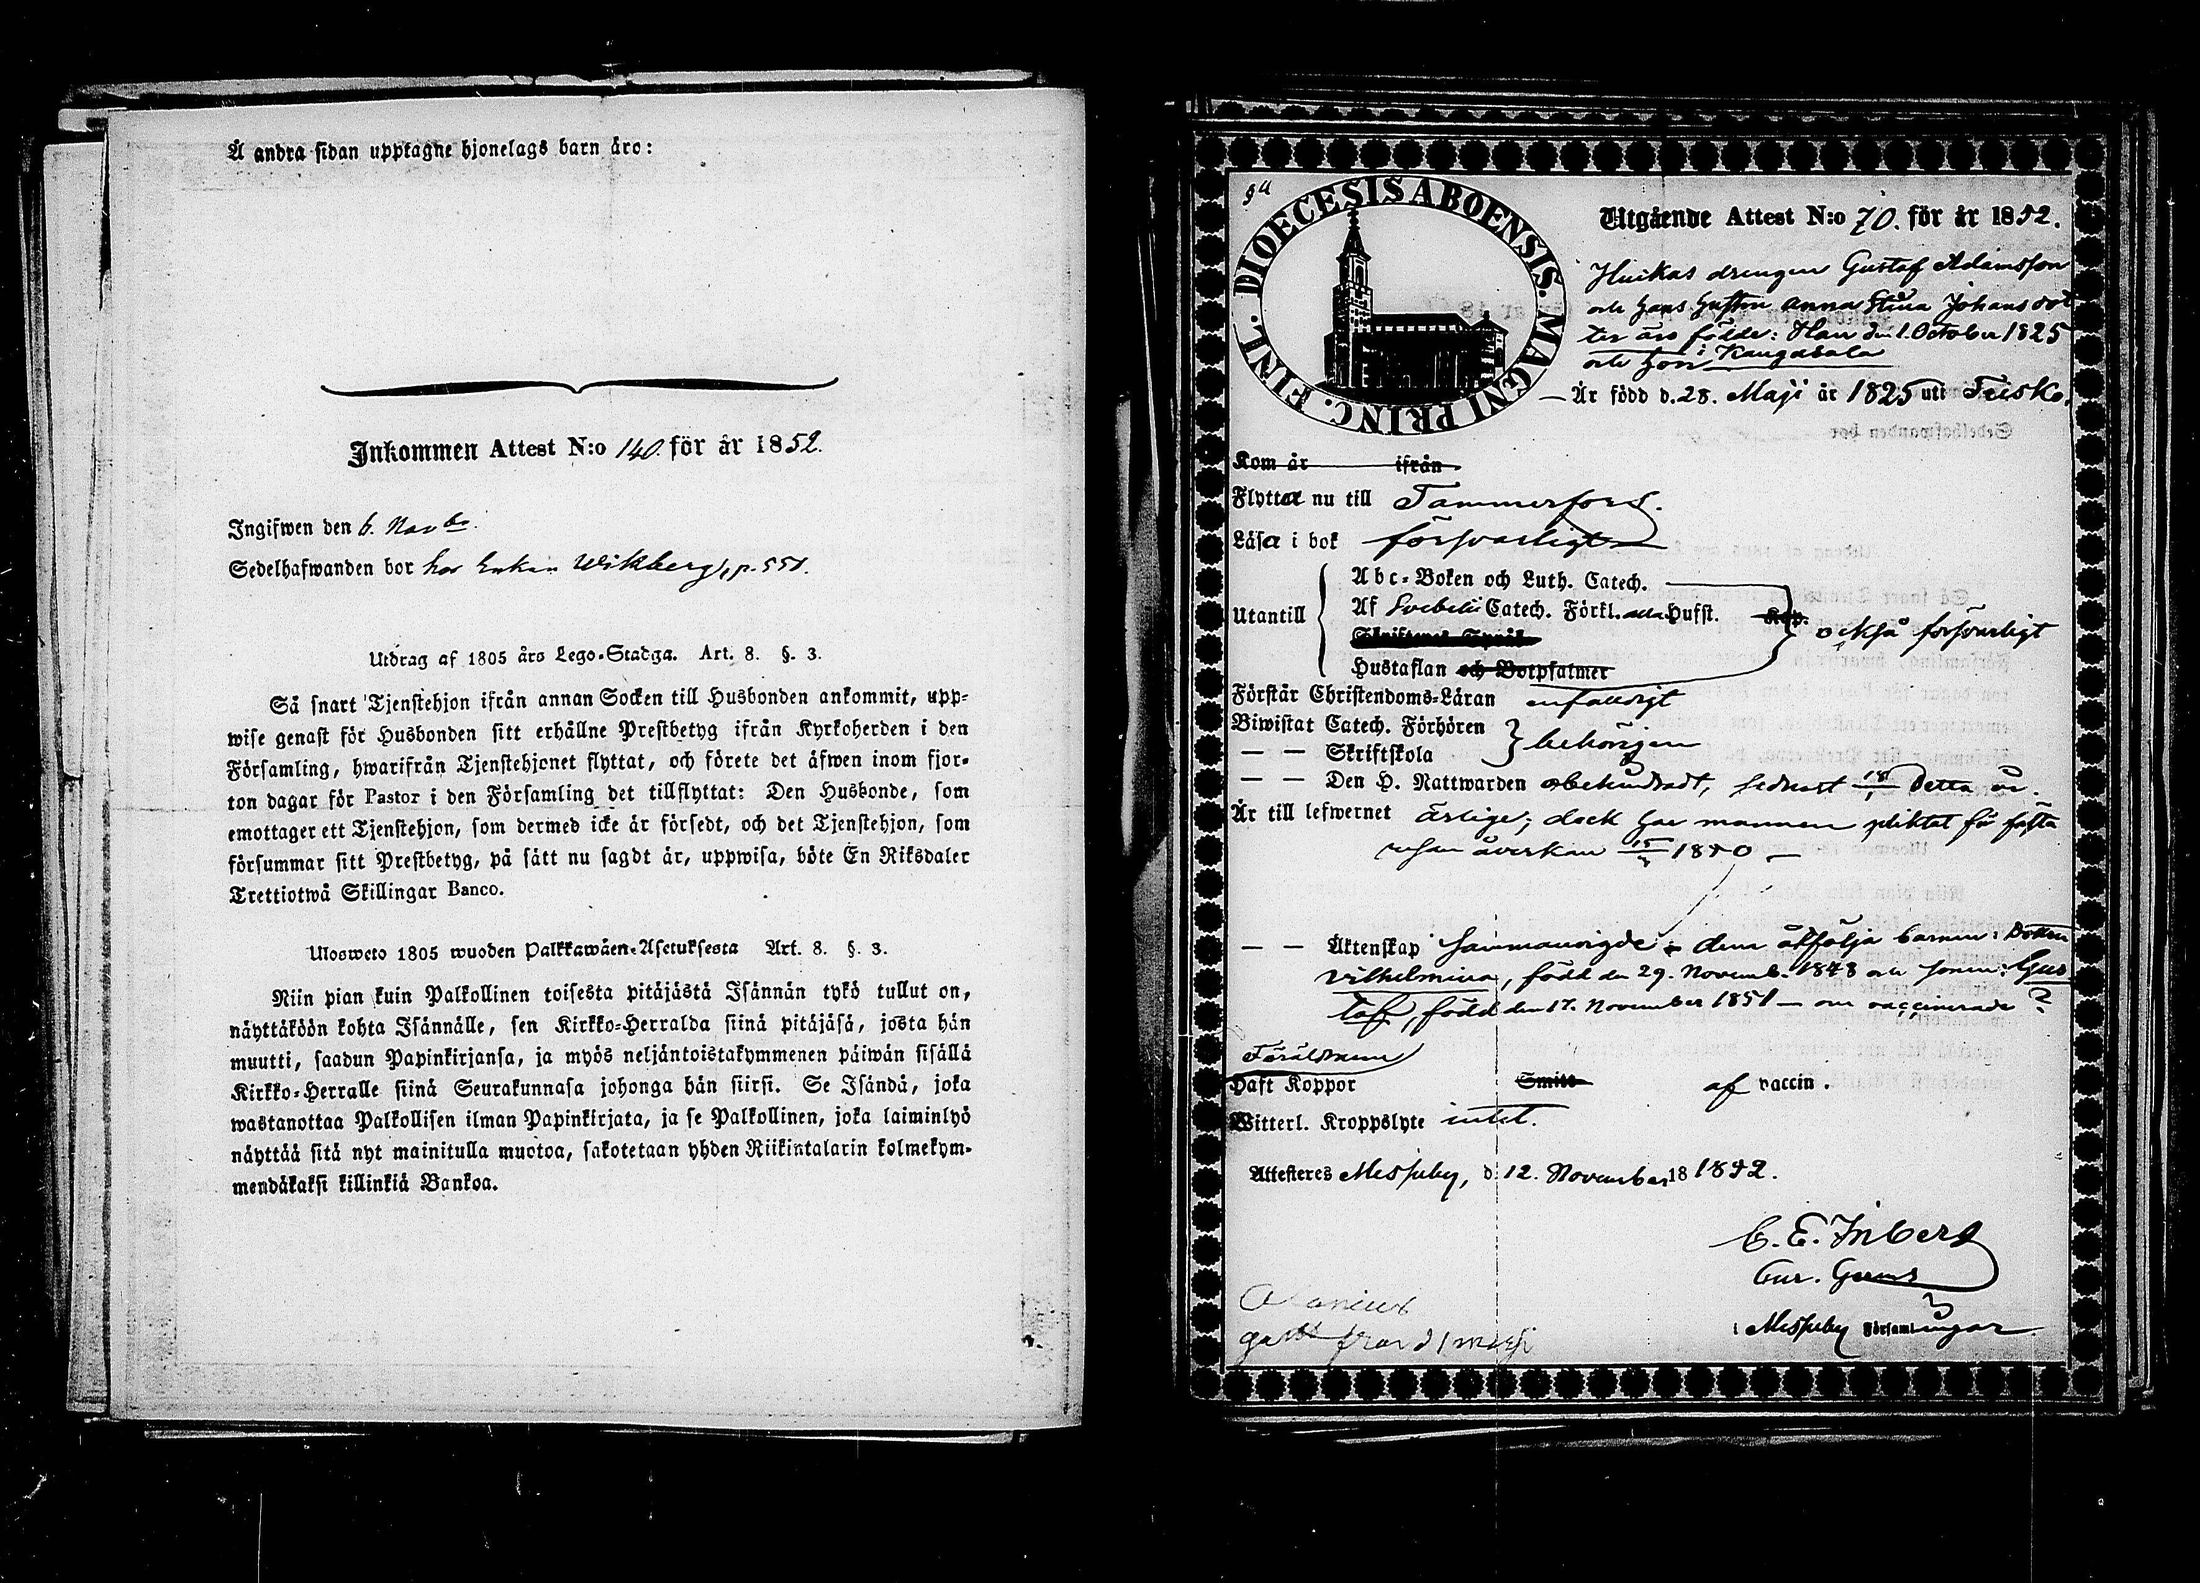 Å andra sidan upptagne hjonelags barn äro:
Inkommen Attest N:o 140. för år 1852.
Ingifwen den 6. Novbr.
Sedelhafwanden bor hos Enkan Wikberg, p. 551.
Utdrag af 1805 års Lego-Stadga. Art. 8. §. 3.
Så snart Tjenstehjon ifrån annan Socken till Husbonden ankommit, upp-
wise genast för Husbonden sitt erhållne Prestbetyg ifrån Kyrkoherden i den
Församling, hwarifrån Tjenstehjonet flyttat, och förete det äfwen inom fjor-
ton dagar för Pastor i den Församling det tillflyttat: Den Husbonde, som
emottager ett Tjenstehjon, som dermed icke är försedt, och det Tjenstehjon, som
försummar sitt Prestbetyg, på sätt nu sagdt är, uppwisa, böte En Riksdaler
Trettiotwå Skillingar Banco.
Ulosweto 1805 wuoden Palkkawäen-Asetuksesta Art. 8. §. 3.
Niin pian kuin Palkollinen toisesta pitäjästä Isännän tykö tullut on,
näyttäköön kohta Isännälle, sen Kirkko-Herralda siinä pitäjäsä, josta hän
muutti, saadun Papinkirjansa, ja myös neljäntoistakymmenen päiwän sisällä
Kirkko-Herralle siinä Seurakunnasa johonga hän siirsi. Se Isändä, joka
wastanottaa Palkollisen ilman Papinkirjata, ja se Palkollinen, joka laiminlyö
näyttää sitä nyt mainitulla muotoa, sakotetaan yhden Riikintalarin kolmekym-
mendäkaksi killinkiä Bankoa.
DIOECESIS ABOENSIS. MAGNI PRINC. FINL.
Utgående Attest N:o 70. för år 1852.
Huikas drengen Gustaf Adamsson
och hans hustru Anna Stina Johansdot
ter äro födde: Han den 1. October 1825
i Kangasala
och hon
Är född d. 28. Maji år 1825 uti Teisko.
Kom år ifrån
Flyttar nu till Tammerfors.
Läsa i bok försvarligt
Abc-Boken och Luth. Catech.
Utantill Af Svebelii Catech. Förkl. alla Hufst. Kap. också försvarligt
Skriftenes Språk
Hustaflan och Botpsalmer
Förstår Christendoms-Läran enfalldigt
Biwistat Catech. Förhören
— — Skriftskola behörigen
— — Den H. Nattwarden obehindradt, sednast detta år.
Är till lefwernet ärlige; dock har mannen pliktat för första
resan åverkan 15/3 1850 —
— — Äktenskap sammanvigde; dem åtfölja barnen: Dottren
Vilhelmina, född den 29. Novemb. 1848 och sonen: Gus
taf, född den 17. November 1851 — om vaccinerade?
Föräldrarne
Haft Koppor Smitt af vaccin.
Witterl. Kroppslyte intet.
Attesteres Messuby, d. 12. November 18 1852.
C. E. Inberg
Cur. Gerens
i Messuby Församlingar